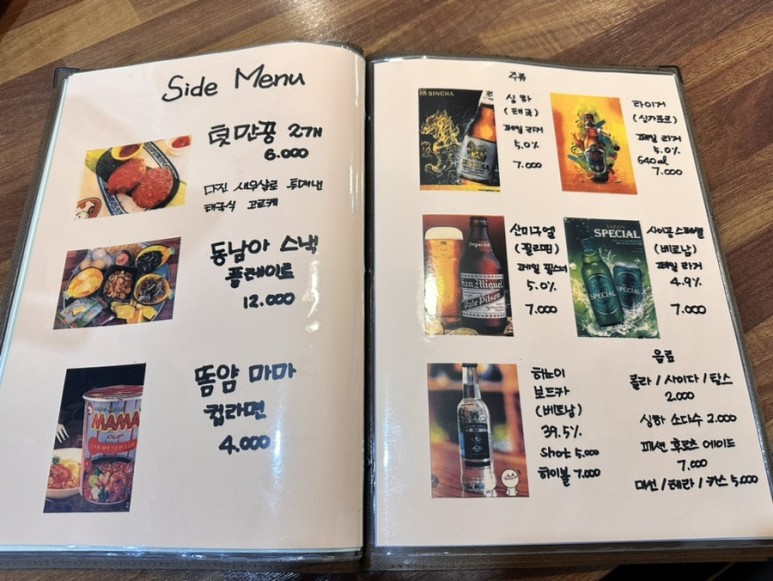 Side Menu
텃만꿍 2개
6.000
다진 새우살로 튀겨낸
태국식 고로케
동남아 스낵
플레이트
12.000
똠얌 마마
컵라면
4.000
MAMA
주류
SINGHA
싱하
(태국)
페일 라거
5.0%
7.000
타이거
(싱가포르)
페일 라거
5.0%
640ml
7.000
산미구엘
(필리핀)
페일 필스너
5.0%
7.000
San Miguel
Pale Pilsen
사이공스페셜
(베트남)
페일 라거
4.9%
7.000
SPECIAL
SPECIAL
하노이
보드카
(베트남)
39.5%
Shot 5.000
하이볼 7.000
음료
콜라 / 사이다 / 탐스
2.000
싱하 소다수 2.000
패션 후르츠 에이드
7.000
대선 / 테라 / 카스 5.000